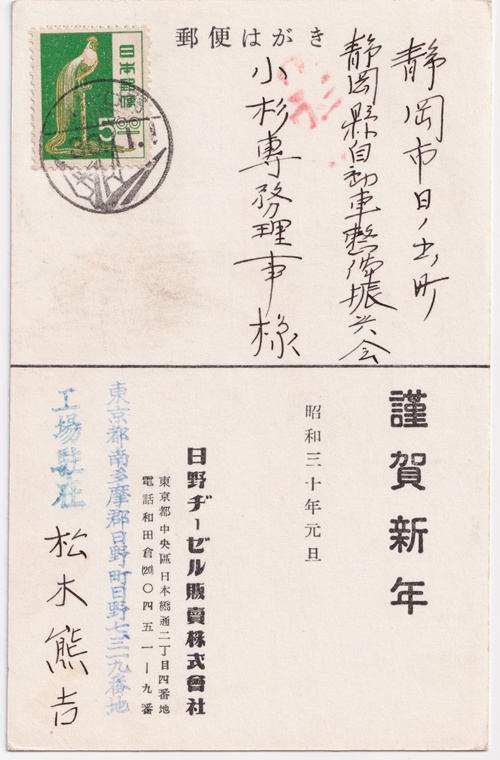 郵便はがき
日本郵便
5.00
静岡市日ノ出町
静岡縣自動車整備振兴会
小杉專務理事様
謹賀新年
昭和三十年元旦
日野ヂーゼル販賣株式會社
東京都中央區日本橋通二丁目四番地
電話和田倉(20)〇四五一ー九番
東京都南多摩郡日野町日野七、三一九番地
工場駐在
松木熊吉